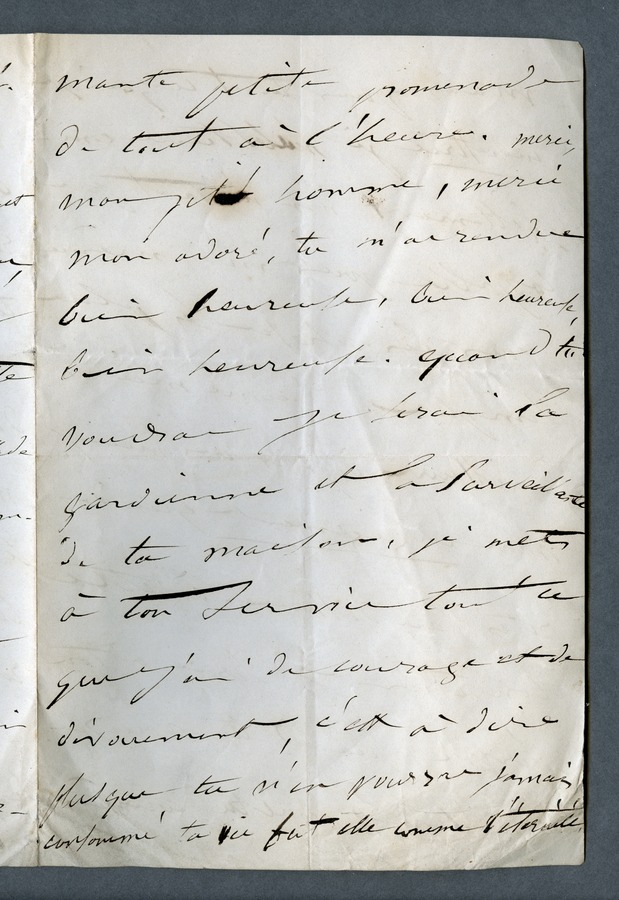 mante petite promenade
de tout à l'heure. merci,
mon petit homme, merci
mon adoré, tu m'as rendue
bien heureuse, bien heureuse,
bien heureuse. quand tu
voudras je serai la
gardienne et la surveillante
de ta maison, je mets
à ton service tout ce
que j'ai de courage et de
dévouement, c'est à dire
plus que tu n'en pourras jamais
consommé ta vie fut elle comme l'éternité.